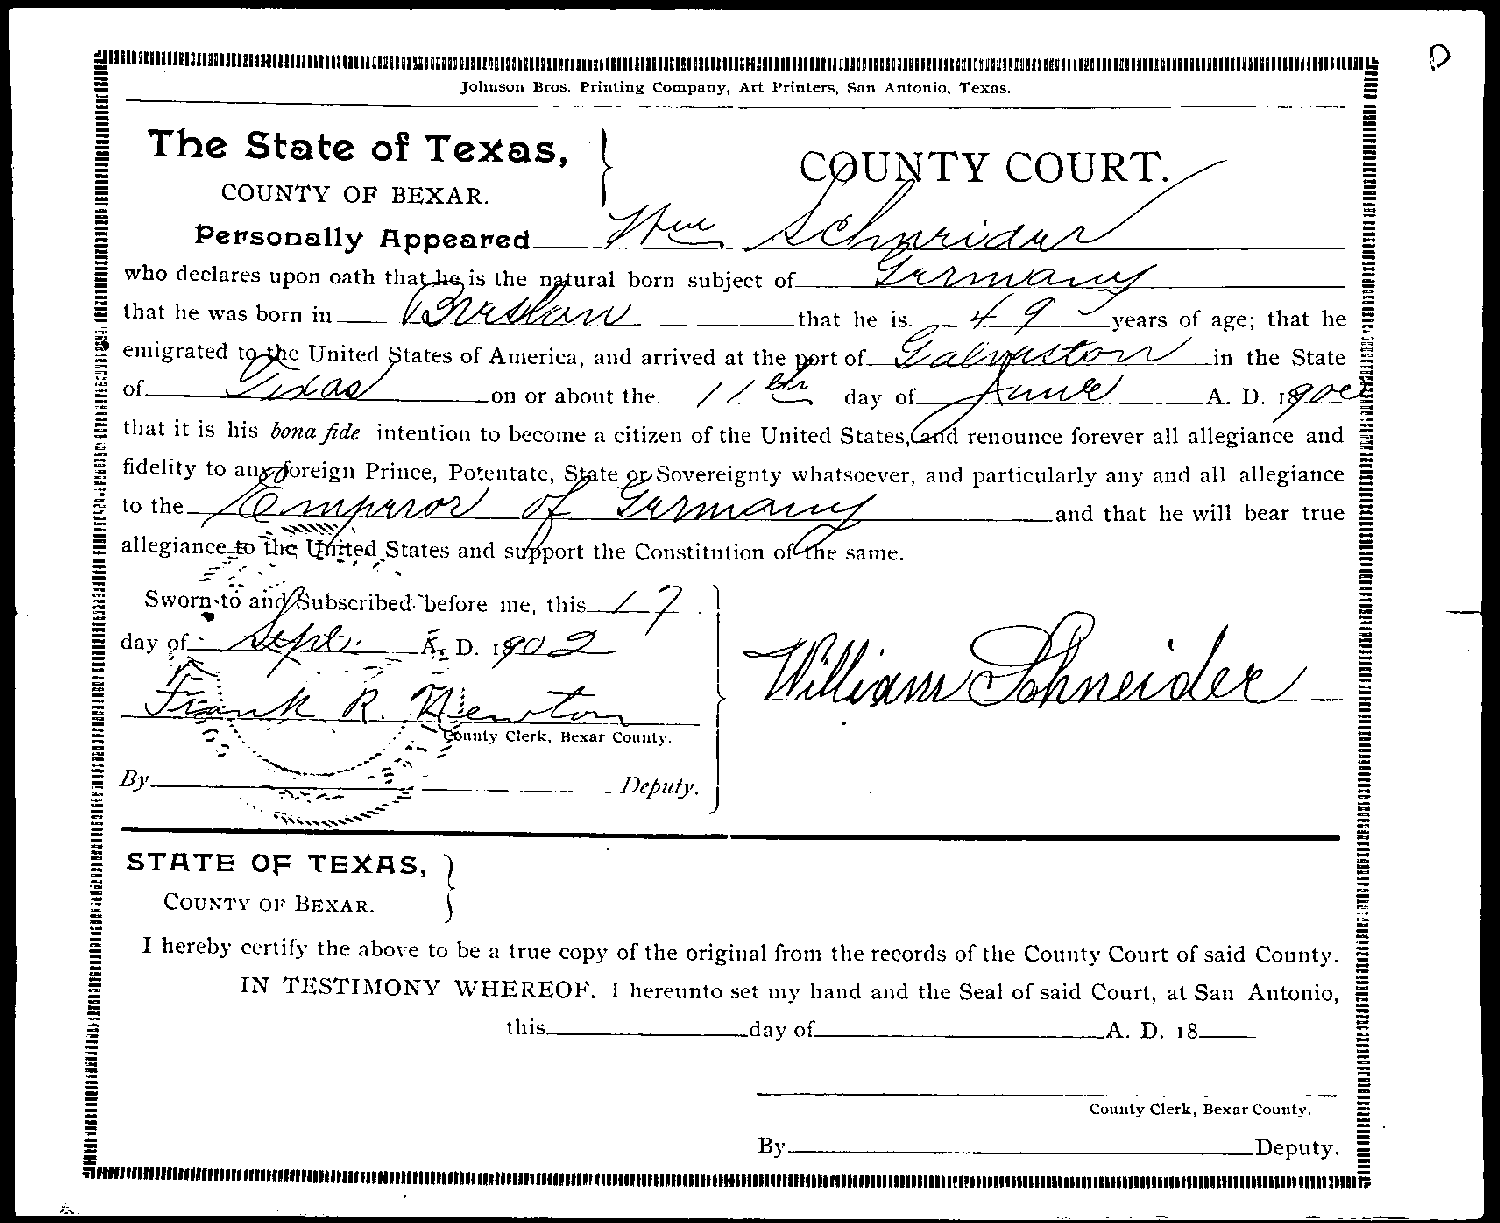 Johnson Bros. Printing Company, Art Printers, San Antonio, Texas.
The State of Texas,
COUNTY OF BEXAR.
COUNTY COURT.
Personally Appeared Wm Schneider
who declares upon oath that he is the natural born subject of Germany
that he was born in Breslau that he is 49 years of age; that he
emigrated to the United States of America, and arrived at the port of Galveston in the State
of Texas on or about the 11th day of June A. D. 1900
that it is his bona fide intention to become a citizen of the United States, and renounce forever all allegiance and
fidelity to any foreign Prince, Potentate, State or Sovereignty whatsoever, and particularly any and all allegiance
to the Emperor of Germany and that he will bear true
allegiance to the United States and support the Constitution of the same.
Sworn to and Subscribed before me, this 17
day of Sept. A. D. 1902
William Schneider
Frank R. Newton
County Clerk, Bexar County.
By Deputy.
STATE OF TEXAS,
COUNTY OF BEXAR.
I hereby certify the above to be a true copy of the original from the records of the County Court of said County.
IN TESTIMONY WHEREOF, I hereunto set my hand and the Seal of said Court, at San Antonio,
this day of A. D. 18
County Clerk, Bexar County.
By Deputy.